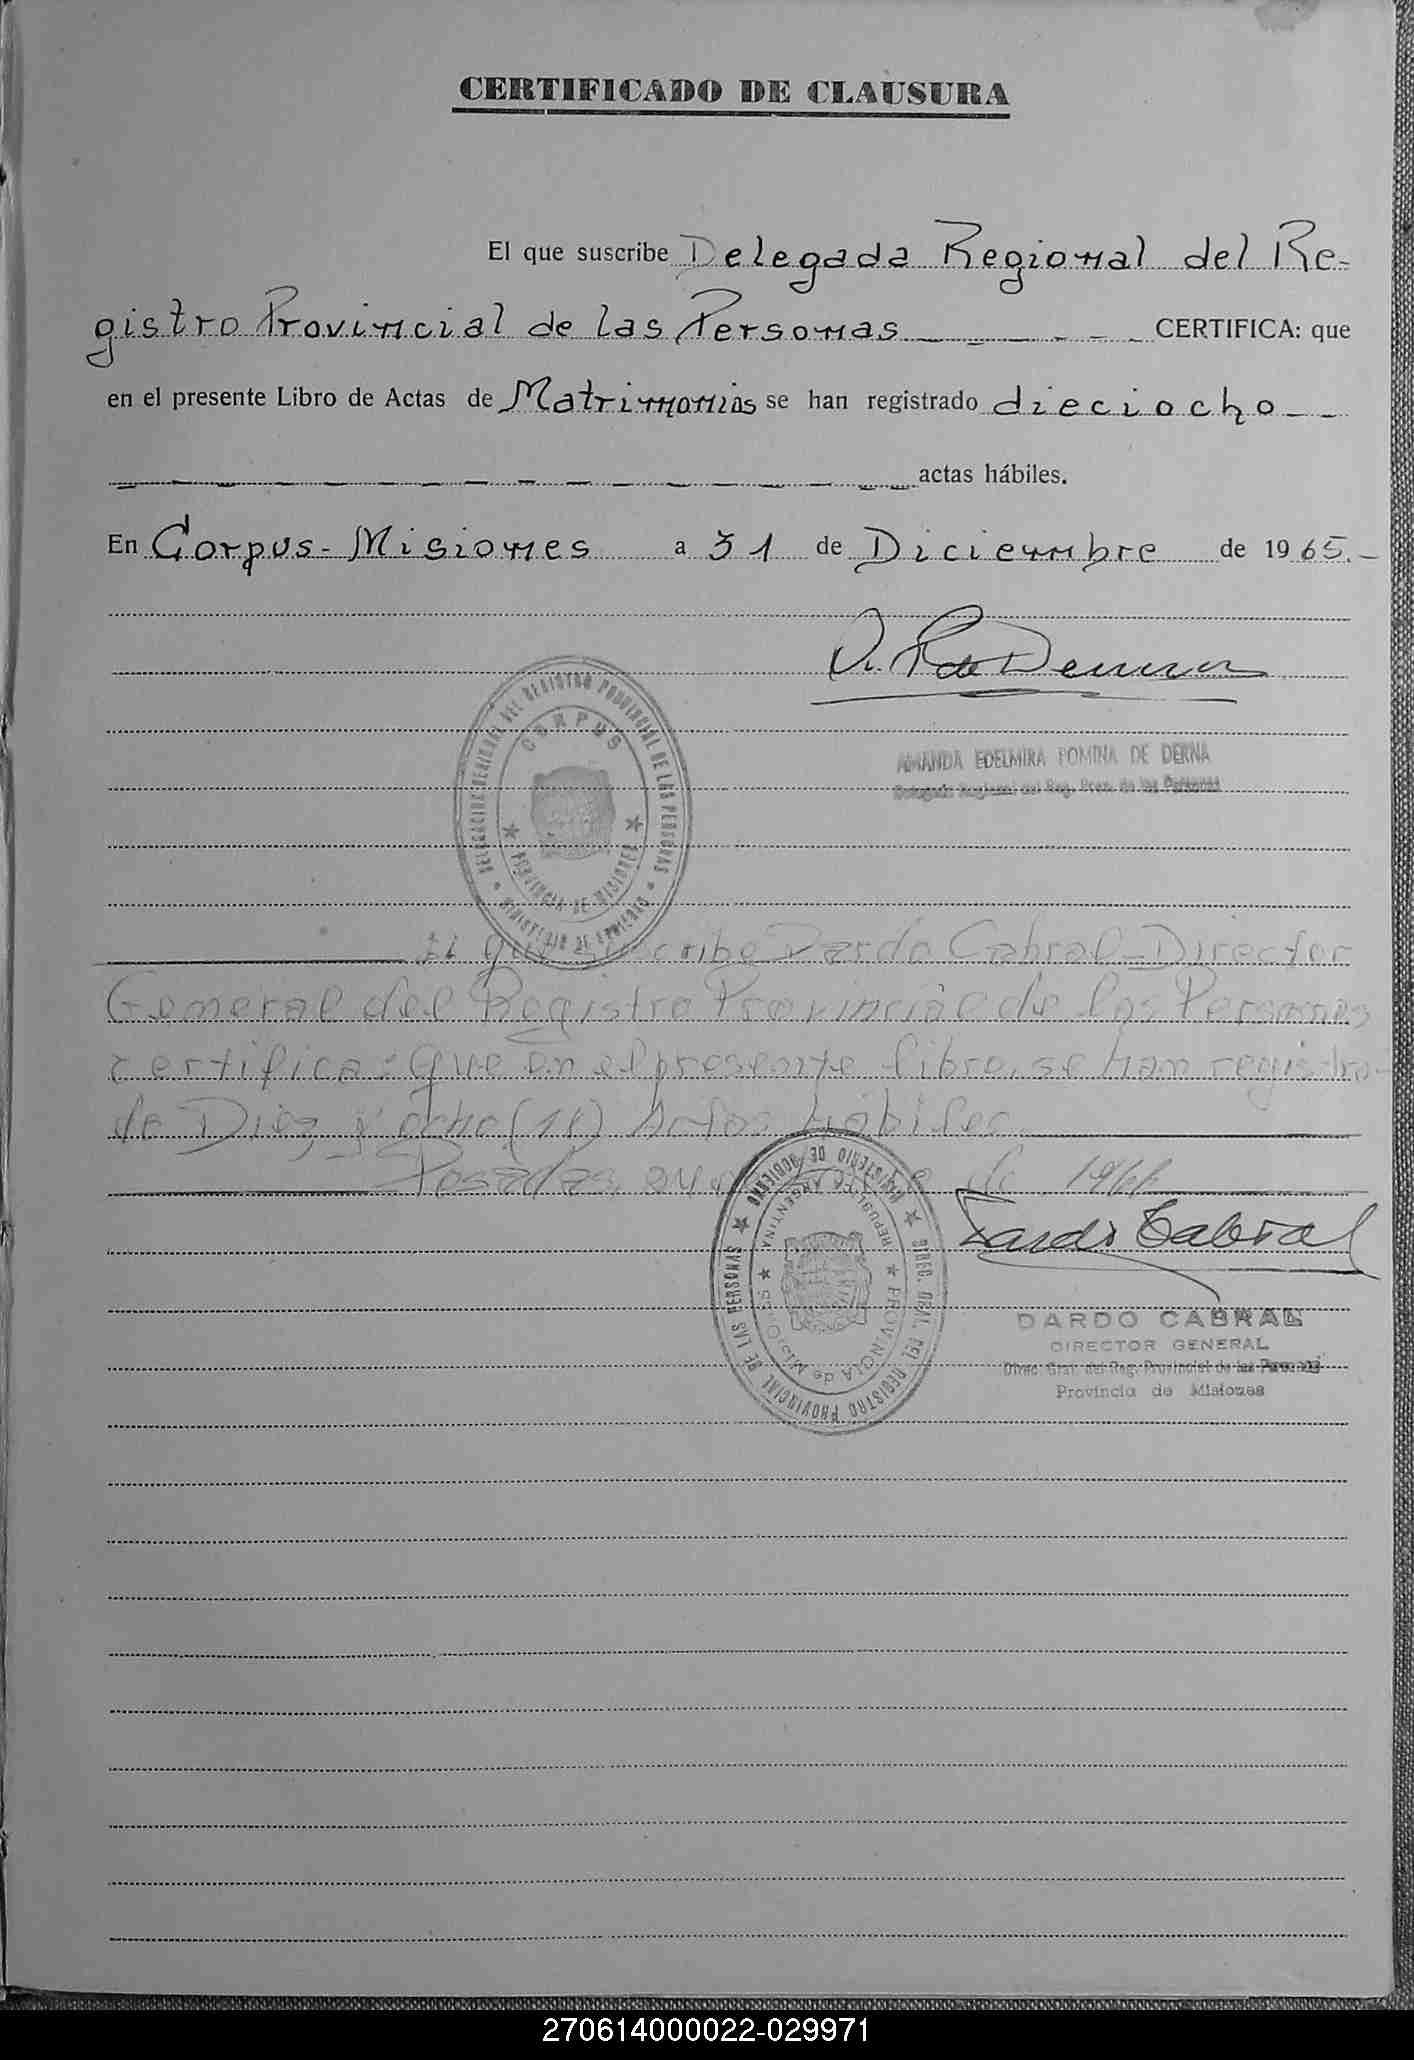 CERTIFICADO DE CLAUSURA
El que suscribe Delegada Regional del Re-
gistro Provincial de las Personas CERTIFICA: que
en el presente Libro de Actas de Matrimonios se han registrado dieciocho
actas hábiles.
En Corpus - Misiones a 31 de Diciembre de 1965.-
A. P. de Derna
DELEGACION REGIONAL DEL REGISTRO PROVINCIAL DE LAS PERSONAS
CORPUS
PROVINCIA DE MISIONES
MINISTERIO DE GOBIERNO
AMANDA EDELMIRA POMINA DE DERNA
Delegada Regional del Reg. Prov. de las Personas
El que suscribe Dardo Cabral - Director
General del Registro Provincial de las Personas
certifica: Que en el presente libro, se han registra-
do Diez y ocho (18) Actas hábiles.
Posadas, de 1966
Dardo Cabral
MINISTERIO DE GOBIERNO
DIREC. GRAL. DEL REGISTRO PROVINCIAL DE LAS PERSONAS
REPUBLICA ARGENTINA
PROVINCIA de MISIONES
DARDO CABRAL
DIRECTOR GENERAL
Direc. Gral. del Reg. Provincial de las Personas
Provincia de Misiones
270614000022-029971